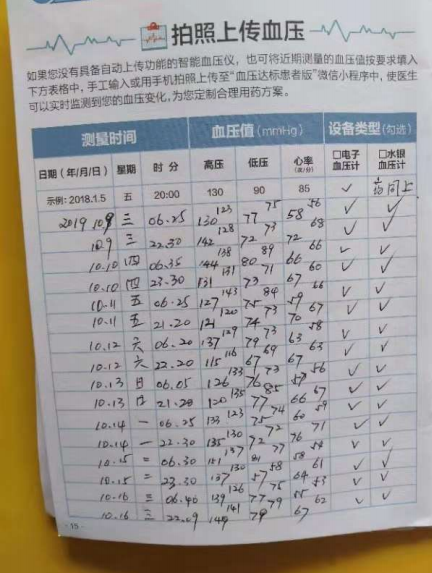 拍照上传血压
如果您没有具备自动上传功能的智能血压仪，也可将近期测量的血压值按要求填入
下方表格中，手工输入或用手机拍照上传至“血压达标患者版”微信小程序中，使医生
可以实时监测到您的血压变化，为您定制合理用药方案。
测量时间 血压值(mmHg) 设备类型(勾选)
日期（年/月/日） 星期 时 分 高压 低压 心率(次/分) □电子血压计 □水银血压计
示例: 2018.1.5 五 20:00 130 90 85 ✓
2019 10.9 三 06.25 130 123 77 75 58 56 ✓ ✓
10.9 三 22.30 142 128 72 73 72 68 ✓ ✓
10.10 四 06.35 144 138 80 89 66 66 ✓ ✓
10.10 四 23.30 131 131 73 71 67 60 ✓ ✓
10.11 五 06.25 127 143 84 59 66 ✓ ✓
10.11 五 21.20 121 120 74 73 70 67 ✓ ✓
10.12 六 06.20 137 129 79 73 63 58 ✓ ✓
10.12 六 22.20 115 116 67 69 67 63 ✓ ✓
10.13 日 06.05 126 133 76 73 56 ✓ ✓
10.13 日 21.20 120 135 77 85 66 67 ✓ ✓
10.14 一 06.25 133 123 75 74 60 59 ✓ ✓
10.14 一 22.30 135 130 72 72 76 71 ✓ ✓
10.15 二 06.30 137 77 58 54 ✓ ✓
10.15 二 23.30 137 130 57 58 64 61 ✓ ✓
10.16 三 06.40 139 126 77 75 55 53 ✓ ✓
10.16 三 22.09 141 79 79 67 62 ✓ ✓
- 15 -